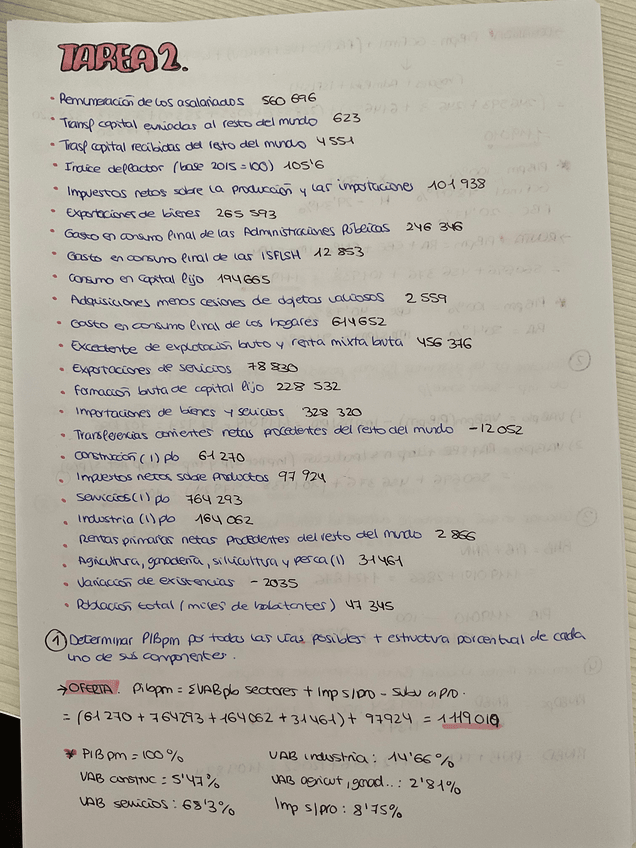 TAREA 2.
• Remuneración de los asalariados 560 696
• Transf capital enviadas al resto del mundo 623
• Trasf capital recibidas del resto del mundo 4 551
• Indice deflactor (base 2015=100) 105'6
• Impuestos netos sobre la producción y las importaciones 101 938
• Exportaciones de bienes 265 593
• Gasto en consumo final de las Administraciones Públicas 246 346
• Gasto en consumo final de las ISFLSH 12 853
• Consumo en capital fijo 194665
• Adquisiciones menos cesiones de objetos valiosos 2 559
• Gasto en consumo final de los hogares 614652
• Excedente de explotación bruto y renta mixta bruta 456 376
• Exportaciones de servicios 78 830
• Formación bruta de capital fijo 228 532
• Importaciones de bienes y servicios 328 320
• Transferencias corrientes netas procedentes del resto del mundo -12 052
• Construcción (1) pb 61 270
• Impuestos netos sobre productos 97 924
• Servicios (1) pb 764 293
• Industria (1) pb 164 062
• Rentas primarias netas procedentes del resto del mundo 2 866
• Agricultura, ganadería, silvicultura y pesca (1) 31461
• Variación de existencias -2035
• Población total (miles de habitantes) 47 345
① Determinar PIBpm por todas las vías posibles + estructura porcentual de cada
uno de sus componentes.
→ OFERTA. Pibpm = ΣVABpb sectores + Imp s/pro - Subv a Pro.
= (61 270 + 764293 + 164062 + 31461) + 97924 = 1119010
* PIBpm = 100% VAB industria: 14'66%
VAB construc = 5'47% VAB agricut, ganad..: 2'81%
VAB servicios: 68'3% Imp s/pro: 8'75%